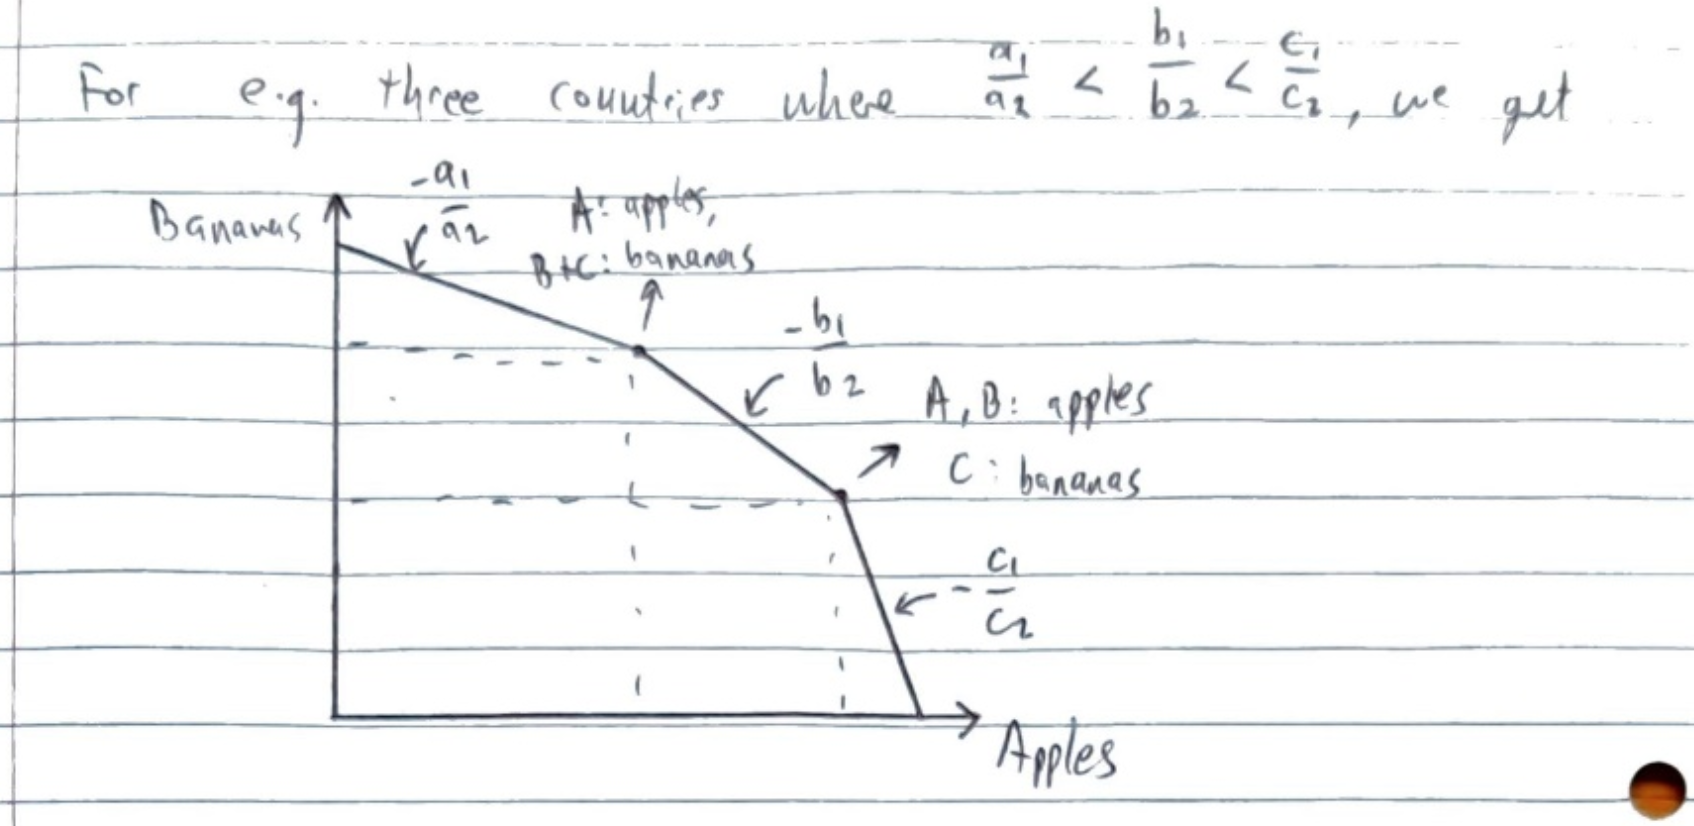 For e.g. three countries where a₁/a₂ < b₁/b₂ < c₁/c₂, we get
-a₁/a₂
Bananas
A: apples,
B+C: bananas
-b₁/b₂
A, B: apples
C: bananas
-c₁/c₂
Apples